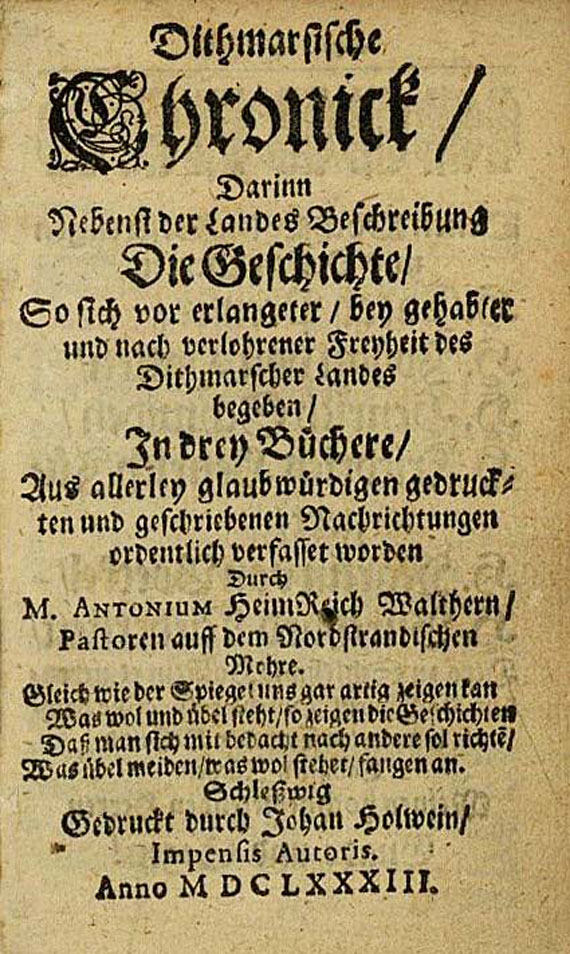 Dithmarsische
Chronick /
Darinn
Nebenst der Landes Beschreibung
Die Geschichte /
So sich vor erlangeter / bey gehabter
und nach verlohrener Freyheit des
Dithmarscher Landes
begeben /
In drey Büchere /
Aus allerley glaubwürdigen gedruck⸗
ten und geschriebenen Nachrichtungen
ordentlich verfasset worden
Durch
M. ANTONIUM HeimReich Walthern /
Pastoren auff dem Nordstrandischen
Mohre.
Gleich wie der Spiegel uns gar artig zeigen kan
Was wol und übel steht / so zeigen die Geschichten
Daß man sich mit bedacht nach andere sol richtē /
Was übel meiden / was wol stehet / fangen an.
Schleßwig
Gedruckt durch Johan Holwein /
Impensis Autoris.
Anno M DCLXXXIII.